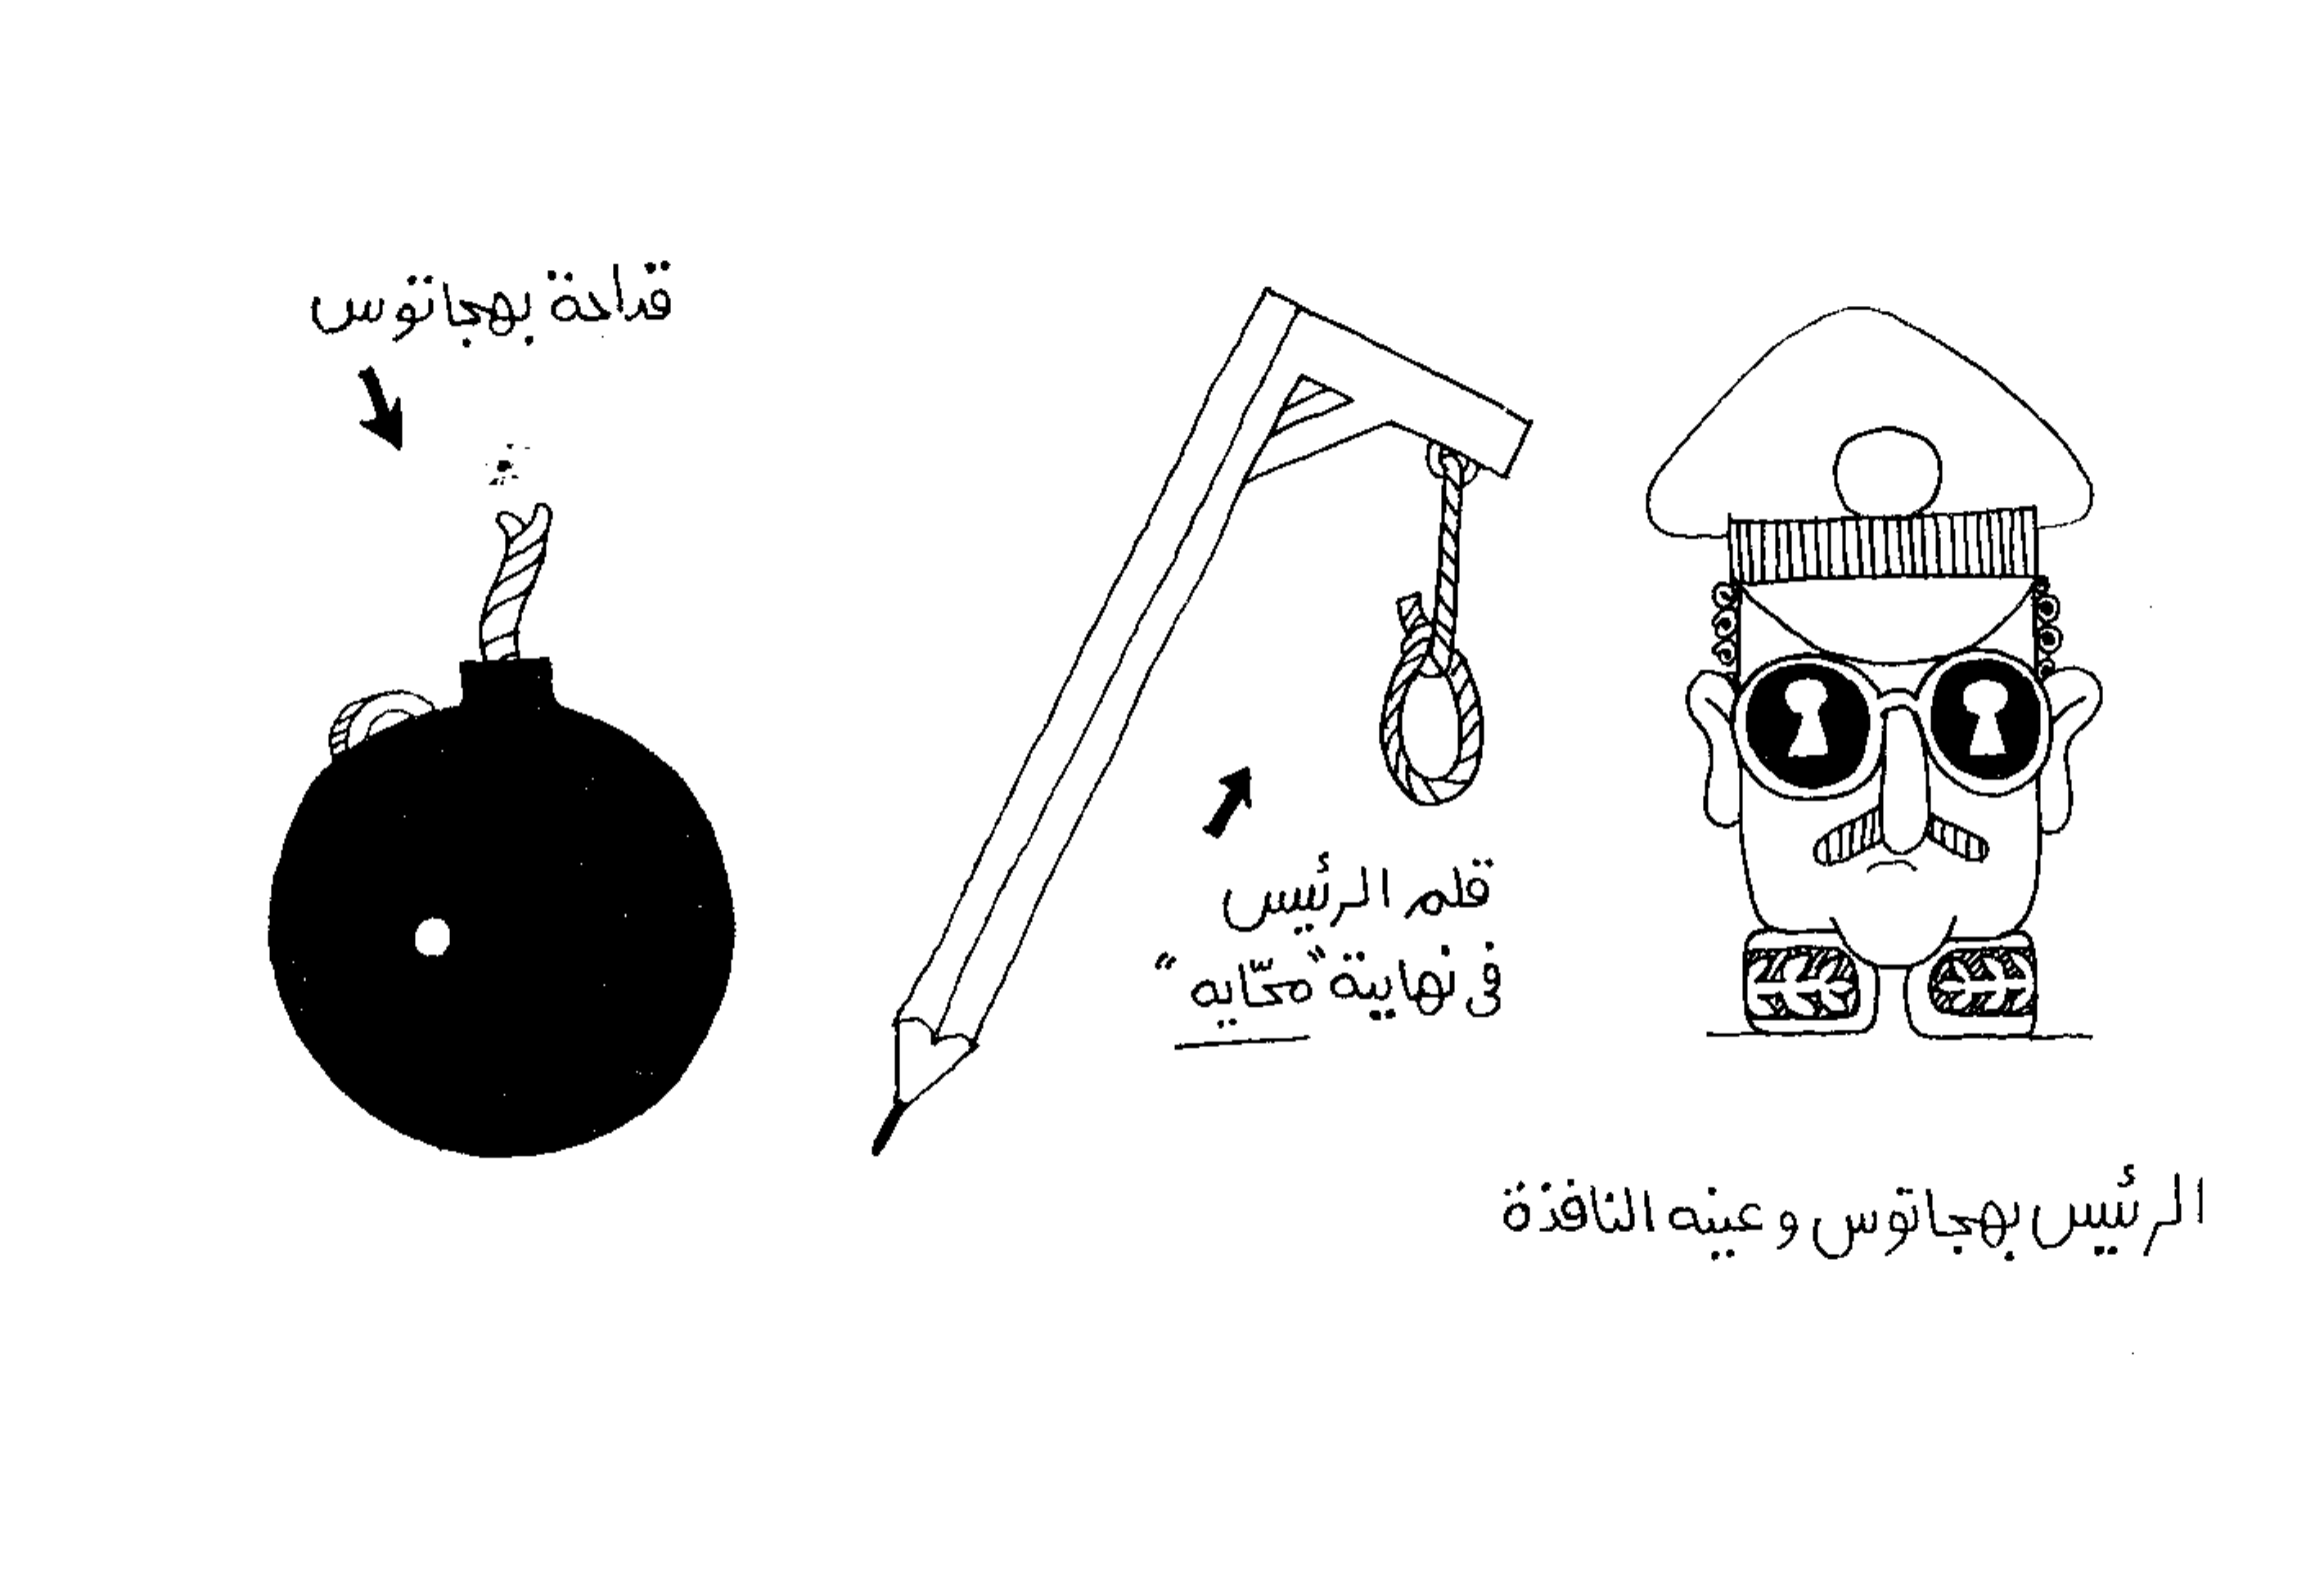 قداحة بهجاتوس
قلم الرئيس
فى نهاية "محّايه"
الرئيس بهجاتوس وعينه النافذة